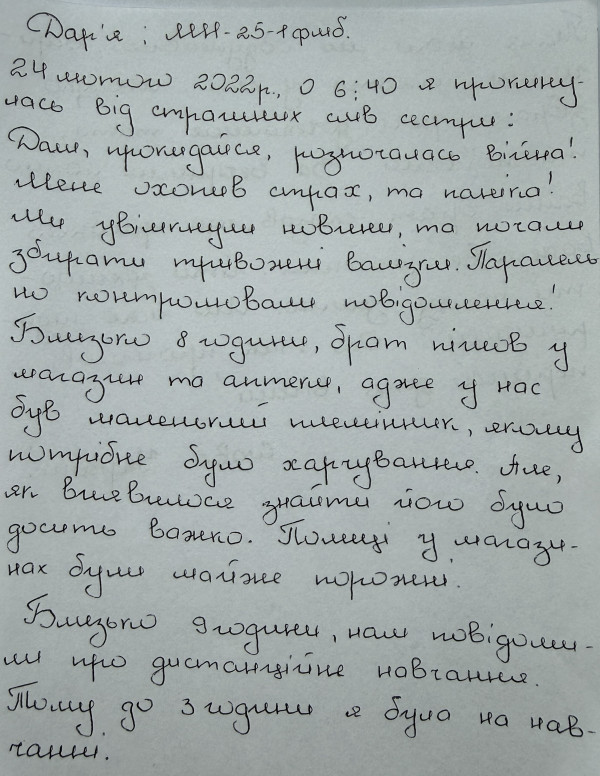 Дар'я ; МІН-25-1фмб.
24 лютого 2022р., о 6:40 я прокину-
лась від страшних слів сестри:
Даш, прокидайся, розпочалась війна!
Мене охопив страх, та паніка!
Ми увімкнули новини, та почали
збирати тривожні валізки. Паралель
но контролювали повідомлення!
Близько 8 години, брат пішов у
магазин та аптеки, адже у нас
був маленький племінник, якому
потрібне було харчування. Але,
як виявилося знайти його було
досить важко. Полиці у магази-
нах були майже порожні.
Близько 9 години, нам повідоми-
ли про дистанційне навчання.
Тому до 3 години я була на нав-
чанні.